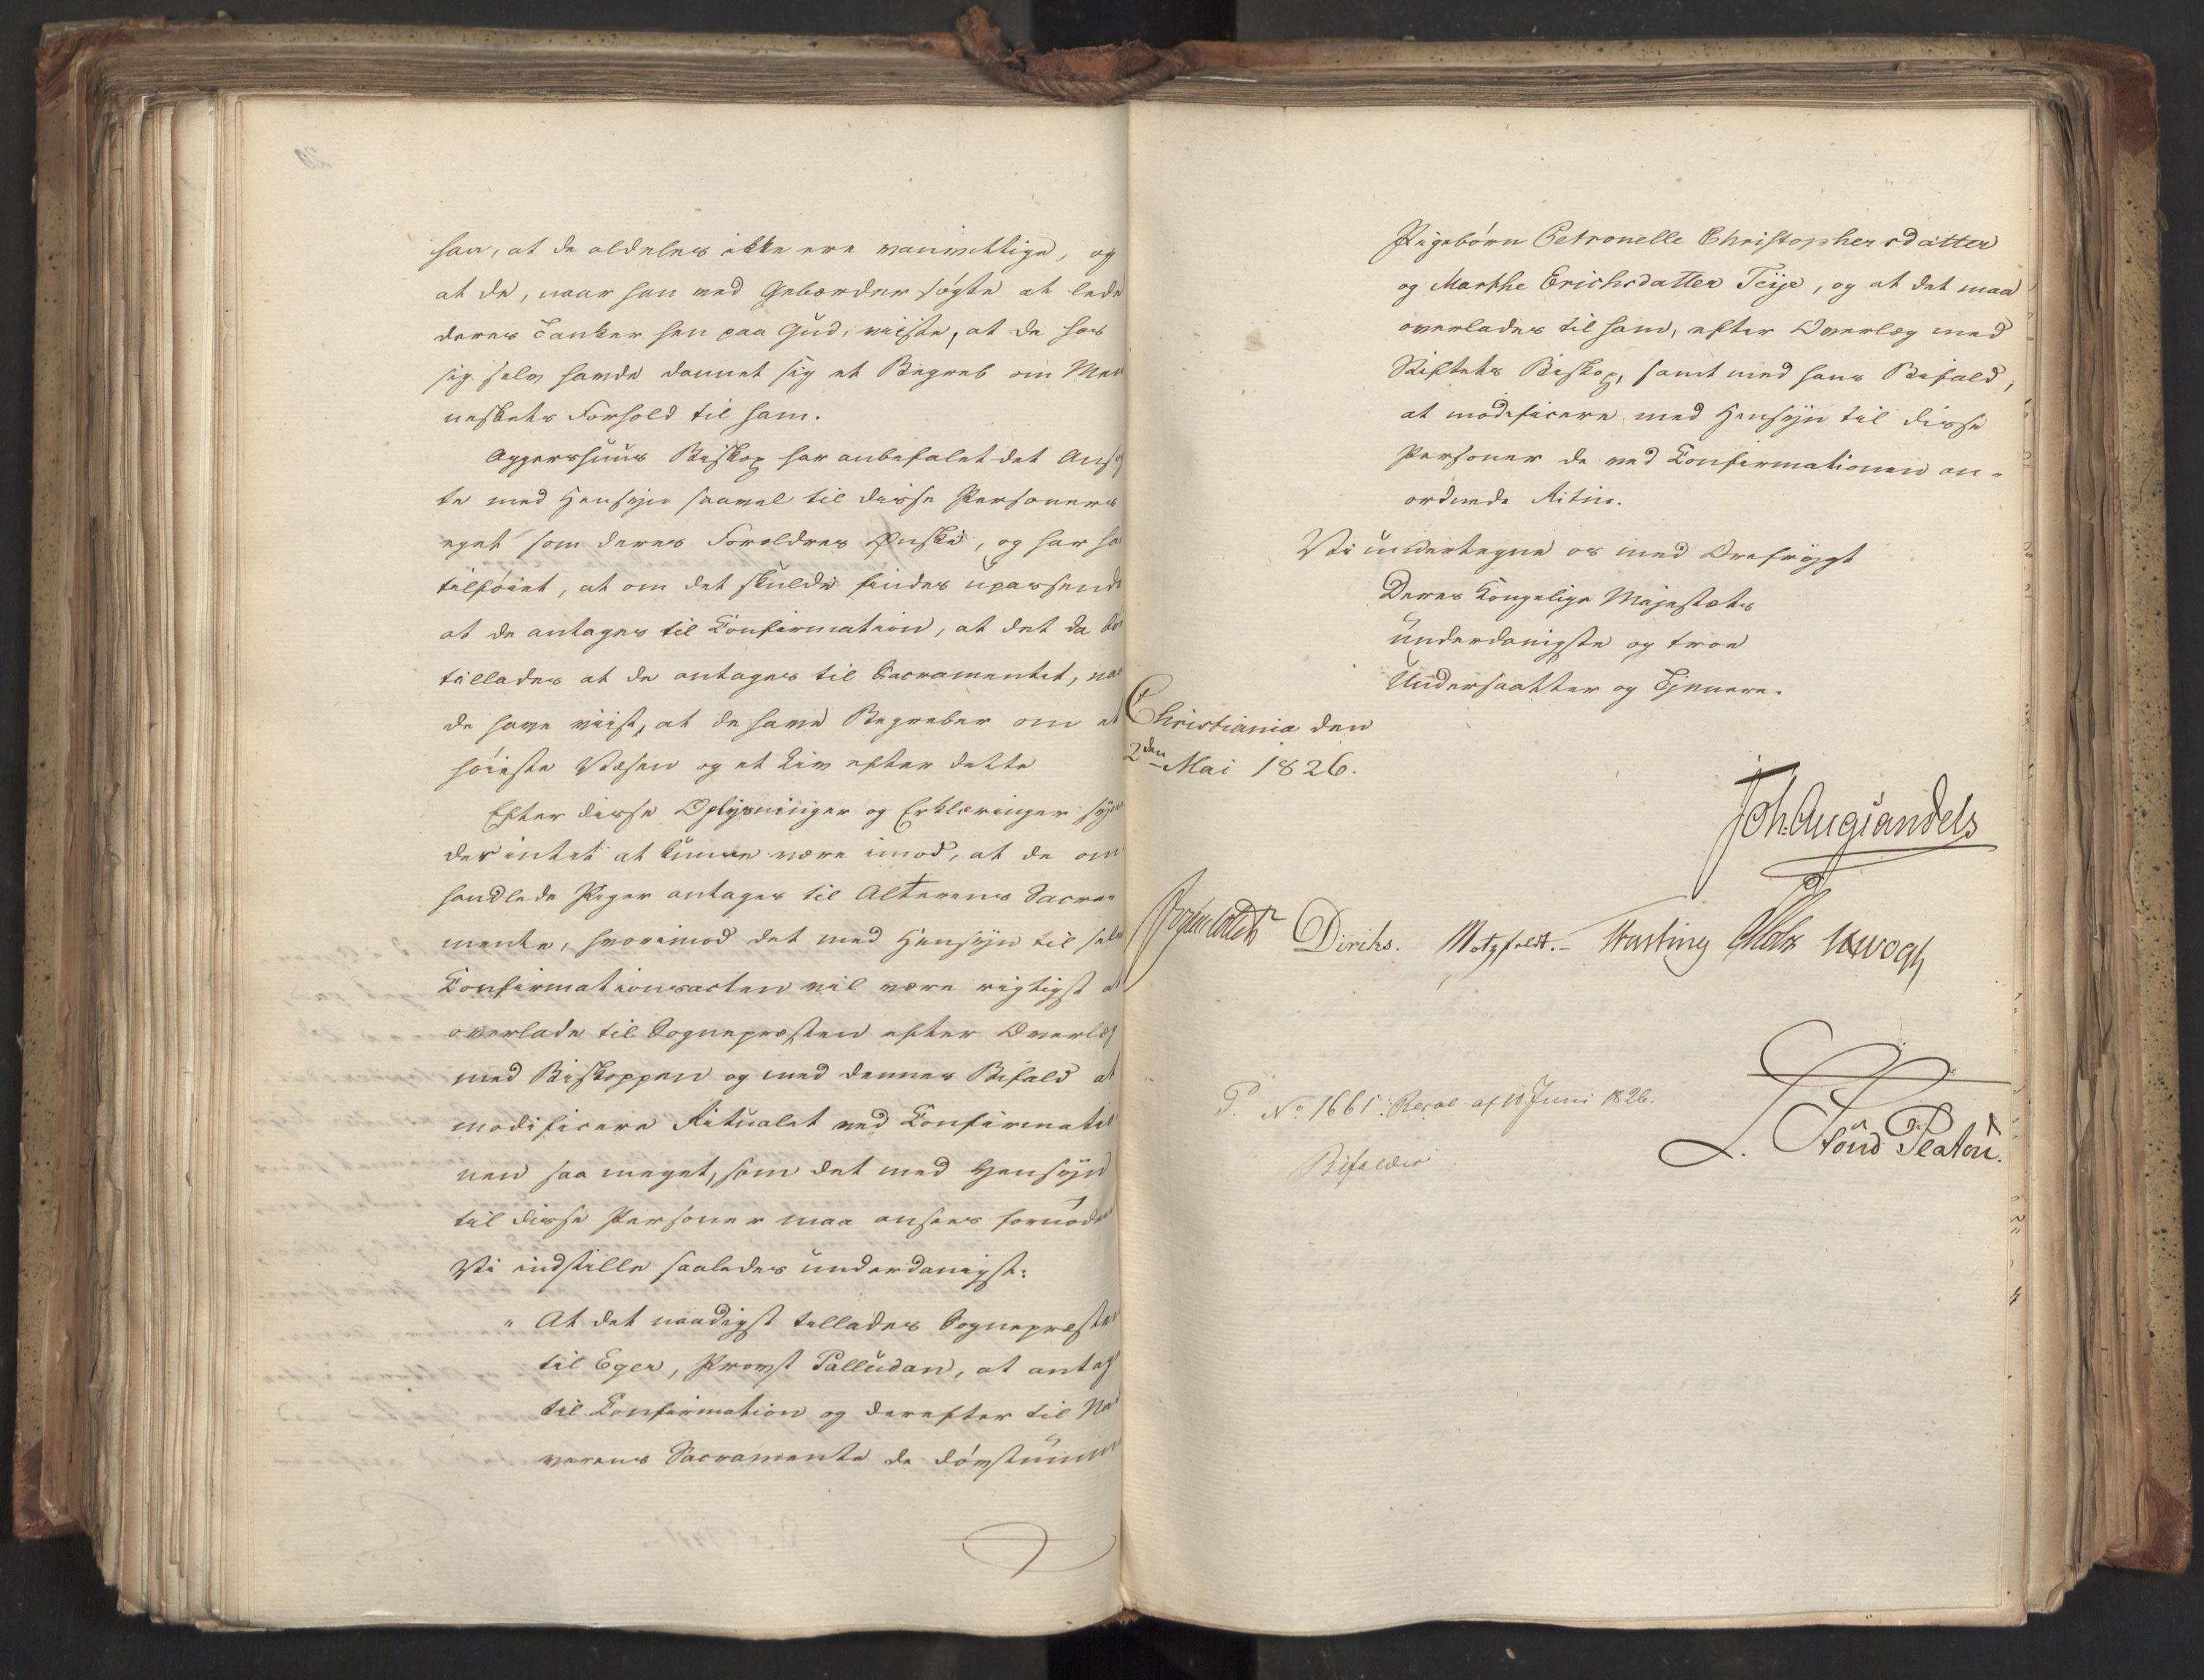 han, at de aldeles ikke ere vanvittige, og
at de, naar han ved Gebærder søgte at lede
deres Tanker hen paa Gud, viiste, at de hos
sig selv havde dannet sig et Begreb om Men
neskets Forhold til ham.
Aggershuus Biskop har anbefalet det Ansøg
te med Hensyn saavel til disse Personers
eget som deres Forældres Ønske, og har
tilføiet, at om det skulde findes upassende
at de antages til Confirmation, at det da
tillades at de antages til Sacramentet, naar
de have viist, at de have Begreber om et
høieste Væsen og et Liv efter dette
Efter disse Oplysninger og Erklæringer synes
der intet at kunne være imod, at de om
handlede Piger antages til Alterens Sacra
mente, hvorimod det med Hensyn til selve
Confirmationsacten vil være rigtigst at
overlade til Sognepræsten efter Overlæg
med Biskoppen og med dennes Bifald at
modificere Ritualet ved Confirmatio
nen saa meget, som det med Hensyn
til disse Personer maa ansees fornøden
Vi indstille saaledes underdanigst:
" At det naadigst tillades Sognepræsten
til Eger, Provst Palludan, at antage
til Confirmation og derefter til Nad
verens Sacramente de døvstumme
Pigebørn Petronelle Christophersdatter
og Marthe Erichsdatter Teije, og at det maa
overlades til ham, efter Overlæg med
Stiftets Biskop, samt med hans Bifald,
at modificere med Hensyn til disse
Personer de ved Confirmationen an-
ordnede Ritus.
Vi undertegne os med Ærefrygt
Deres Kongelige Majestæts
underdanigste og troe
Undersaatter og Tjenere.
Christiania den
2den Mai 1826.
Joh. Aug. Sandels
Diriks. Motzfeldt. Fasting Holst Krogh
P. No 1661. Resol. af 10 Juni 1826.
Bifaldes
L. Roud Platou.